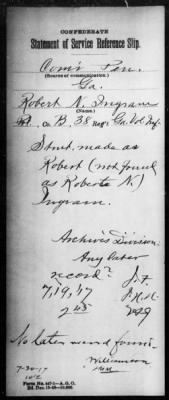 CONFEDERATE
Statement of Service Reference Slip.
Com'r Pen.
(Source of communication.)
Ga.
Robert N. Ingram
(Name.)
Co. B, 38 Reg't Ga. Vol. Inf.
Stmt. made as
Robert (not found
as Roberta N.)
Ingram.
Archives Division:
Any later
record?
7,19,17
No later record found.
Williamson
7-20-17
Form No. 447-1—A. G. O.